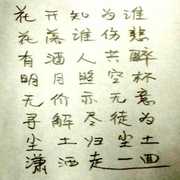 花开如为谁
花落谁伤悲
有酒人共醉
明月照空杯
无价亦无意
寻解尽徒为
尘土归尘土
潇洒走一回